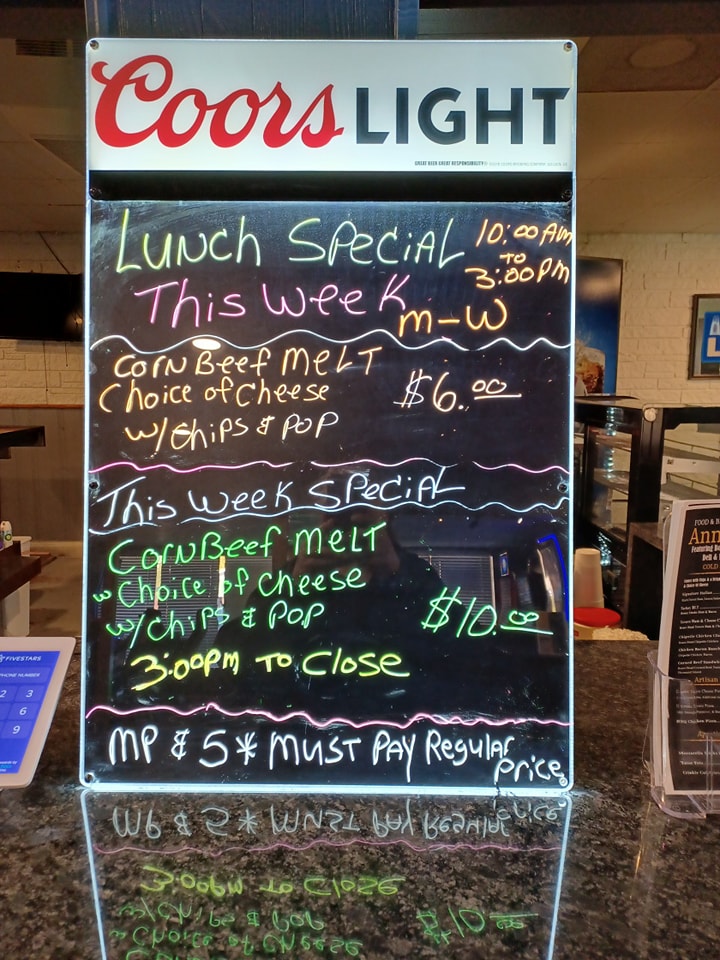 Coors LIGHT
GREAT BEER GREAT RESPONSIBILITY
LUNCH SPECIAL
10:00 AM
TO
3:00 PM
This Week
M-W
CORN Beef MELT
Choice of Cheese
$6.00
w/ Chips & POP
This Week SPeCiAL
CORN Beef MELT
Choice of Cheese
w/ Chips & POP
$10.00
3:00pm TO Close
MP & 5* MUST PAY Regular
price
FIVESTARS
PHONE NUMBER
2 3
6
9
FOOD & B
Ann
Featuring Bo
Deli &
COLD
Artisan